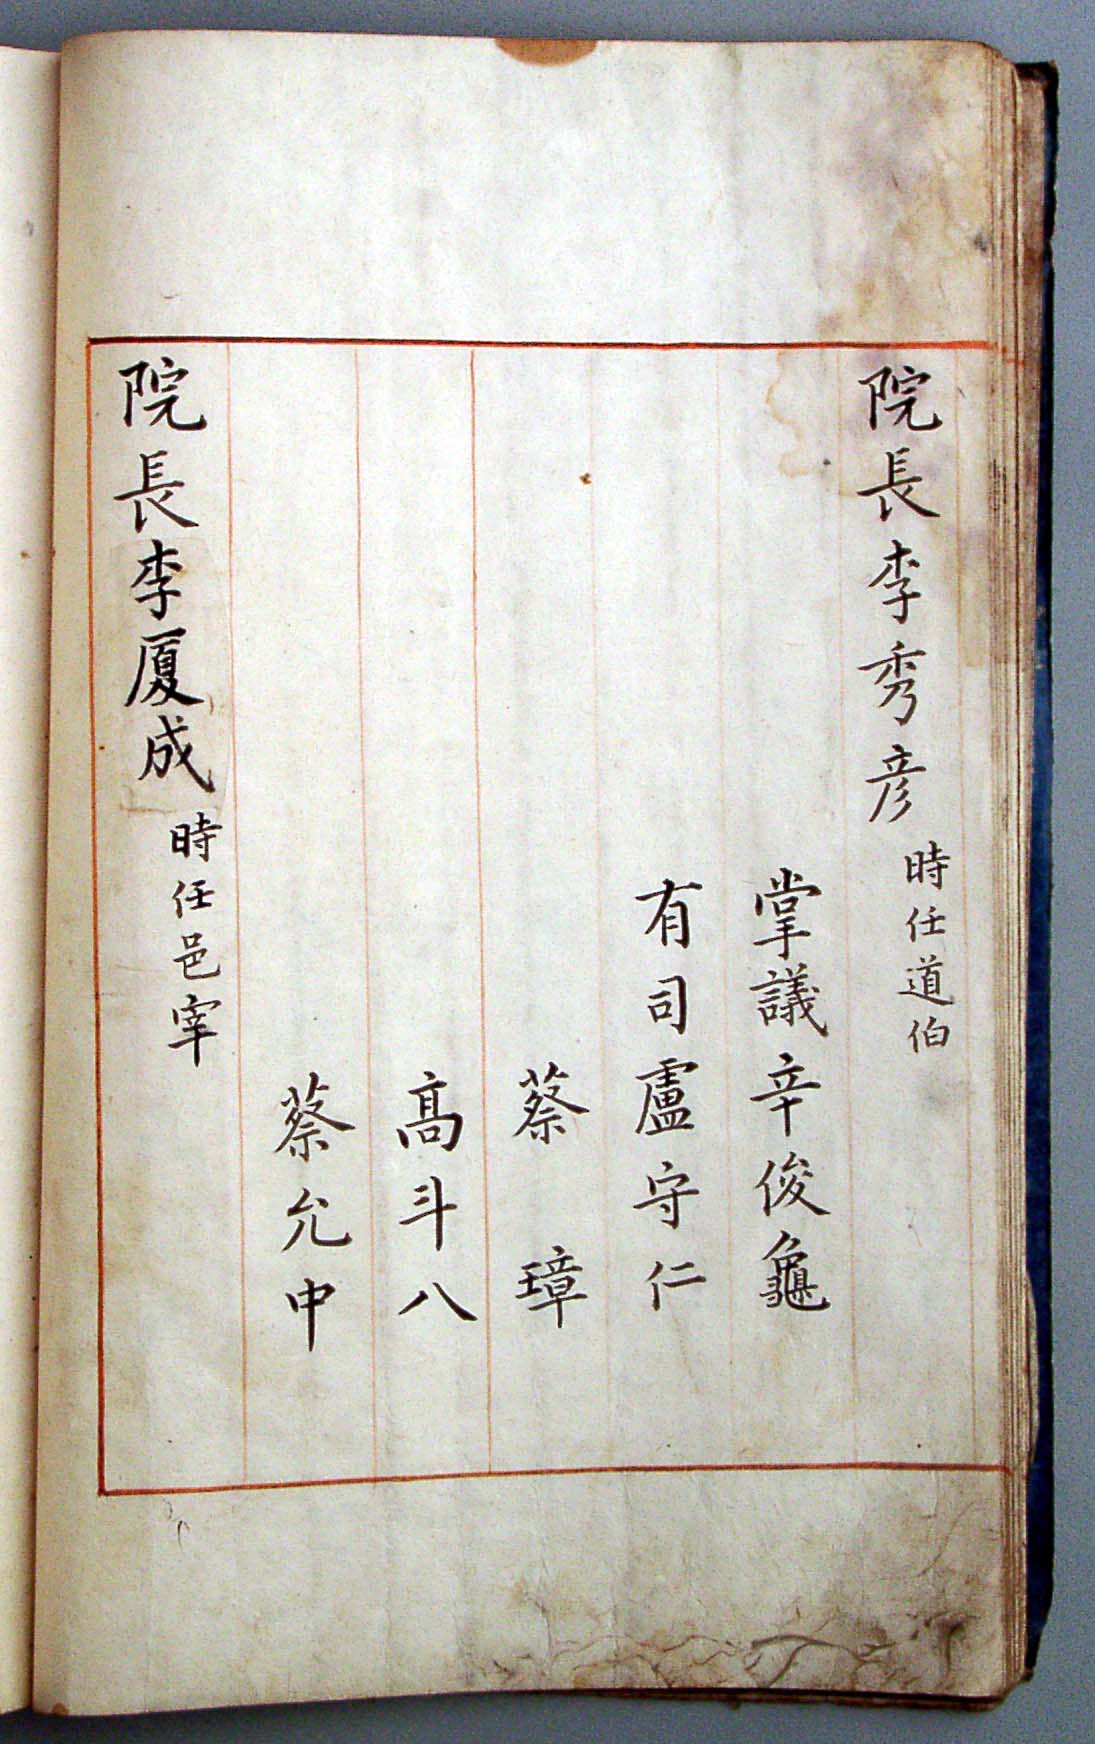 院長李秀彦時任道伯
掌議辛俊龜
有司盧守仁
蔡璋
髙斗八
蔡允中
院長李厦成時任邑宰